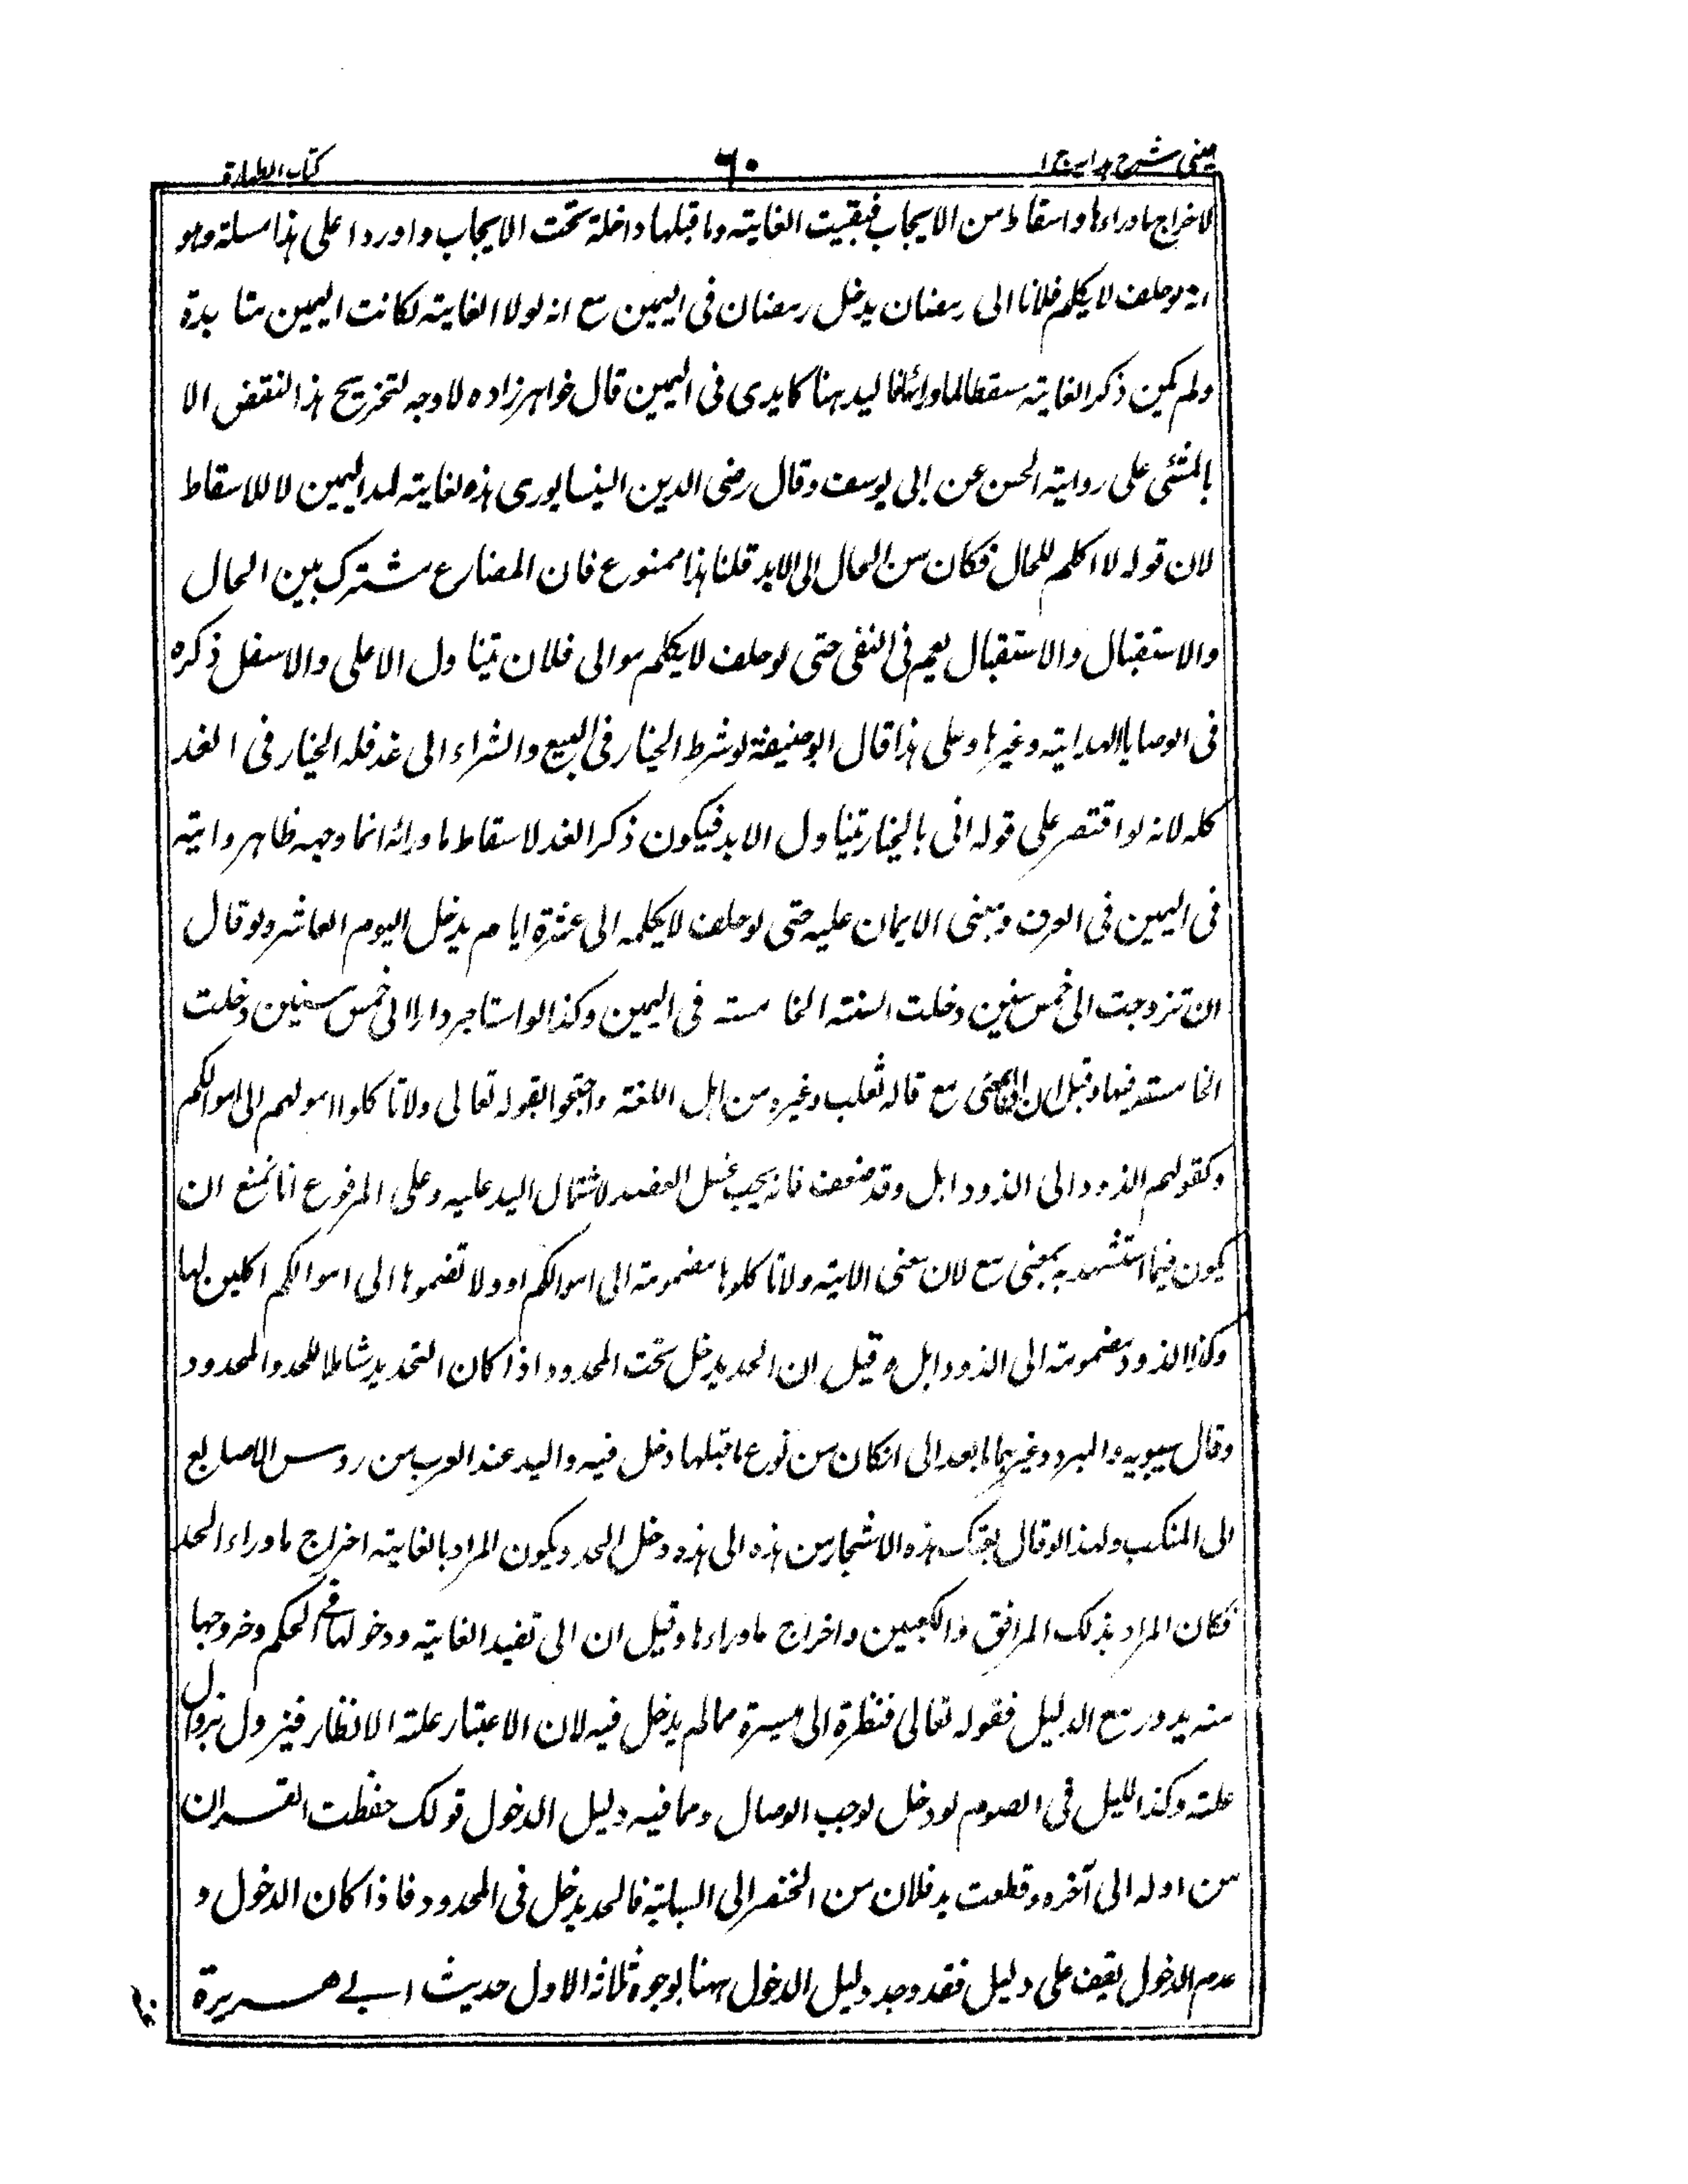 عینی شرح ہدایہ ج ١
٦٠
کتاب الطہارۃ
لاخراج ماوراءها واسقاط من الایجاب فبقیت الغایۃ وما قبلہا داخلۃ تحت الایجاب واورد اعلی ہذا مسلۃ وہو
انہ لو حلف لا یکلم فلانا الی رمضان یدخل رمضان فی الیمین مع انہ لولا الغایۃ لکانت الیمین متا بدۃ
ولم یکن ذکر الغایۃ مسقطا لما ورائہا فالید ہہنا کالابدی فی الیمین قال خواہرزادہ لاوجہ لتخریج ہذا النقض الا
بالمشی علی روایۃ الحسن عن ابی یوسف وقال رضی الدین النیسابوری ہذہ لغایۃ لمد الیمین لا للاسقاط
لان قولہ لا اکلم للحال فکان من الحال الی الابد قلنا ہذا ممنوع فان المضارع مشترک بین الحال
والاستقبال والاستقبال یعم فی النفی حتی لو حلف لا یکلم موالی فلان یتنا ول الاعلی والاسفل ذکرہ
فی الوصایا الہدایۃ وغیرہا وعلی ہذا قال ابو حنیفۃ لو شرط الخیار فی البیع والشراء الی غد فلہ الخیار فی الغد
کلہ لانہ لو اقتصر علی قولہ انی بالخیار یتناول الابد فیکون ذکر الغد لاسقاط ماورائہ انما وجہہ ظاہر روایۃ
فی الیمین فی العرف ومبنی الایمان علیہ حتی لو حلف لا یکلمہ الی عشرۃ ایام یدخل الیوم العاشر ولو قال
ان تزوجت الی خمس سنین دخلت السنۃ الخامسۃ فی الیمین وکذا لو استاجر دارا الی خمس سنین دخلت
الخامسۃ فیہا وقیل ان الی بمعنی مع قالہ ثعلب وغیرہ من اہل اللغۃ واحتجوا بقولہ تعالی ولا تا کلوا اموالہم الی اموالکم
وکقولہم الذود الی الذود ابل وقد ضعف فانہ یجب غسل العضد لاشتمال الید علیہ وعلی المرفوع انا نمنع ان
یکون فیما استشہد بہ بمعنی مع لان معنی الایۃ ولا تا کلوہا مضمومۃ الی اموالکم او ولا تضموہا الی اموالکم اکلین لہا
وکذا الذود مضمومۃ الی الذود ابل وقیل ان الحد یدخل تحت المحدود اذا کان التحدید شاملا للحد والمحدود
وقال سیبویہ والمبرد وغیرہما مابعد الی انکان من نوع ما قبلہا دخل فیہ والید عند العرب من رؤس الاصابع
الی المنکب ولہذا لو قال بعتک ہذہ الاشجار من ہذہ الی ہذہ دخل الحد ویکون المراد بالغایۃ اخراج ماوراء الحد
فکان المراد بذلک المرافق والکعبین واخراج ماوراءہا وقیل ان الی تفید الغایۃ ودخولہا فی الحکم وخروجہا
منہ یدور مع الدلیل فقولہ تعالی فنظرۃ الی میسرۃ مما لم یدخل فیہ لان الاعتبار علۃ الانظار فیزول بزوال
علتہ وکذا اللیل فی الصوم لو دخل لوجب الوصال ومما فیہ دلیل الدخول قولک حفظت القرآن
من اولہ الی آخرہ وقطعت ید فلان من الخنصر الی السبابۃ فالحد یدخل فی المحدود فاذا کان الدخول و
عدم الدخول یقف علی دلیل فقد وجد دلیل الدخول ہہنا بوجوہ ثلاثۃ الاول حدیث ابی ہریرۃ